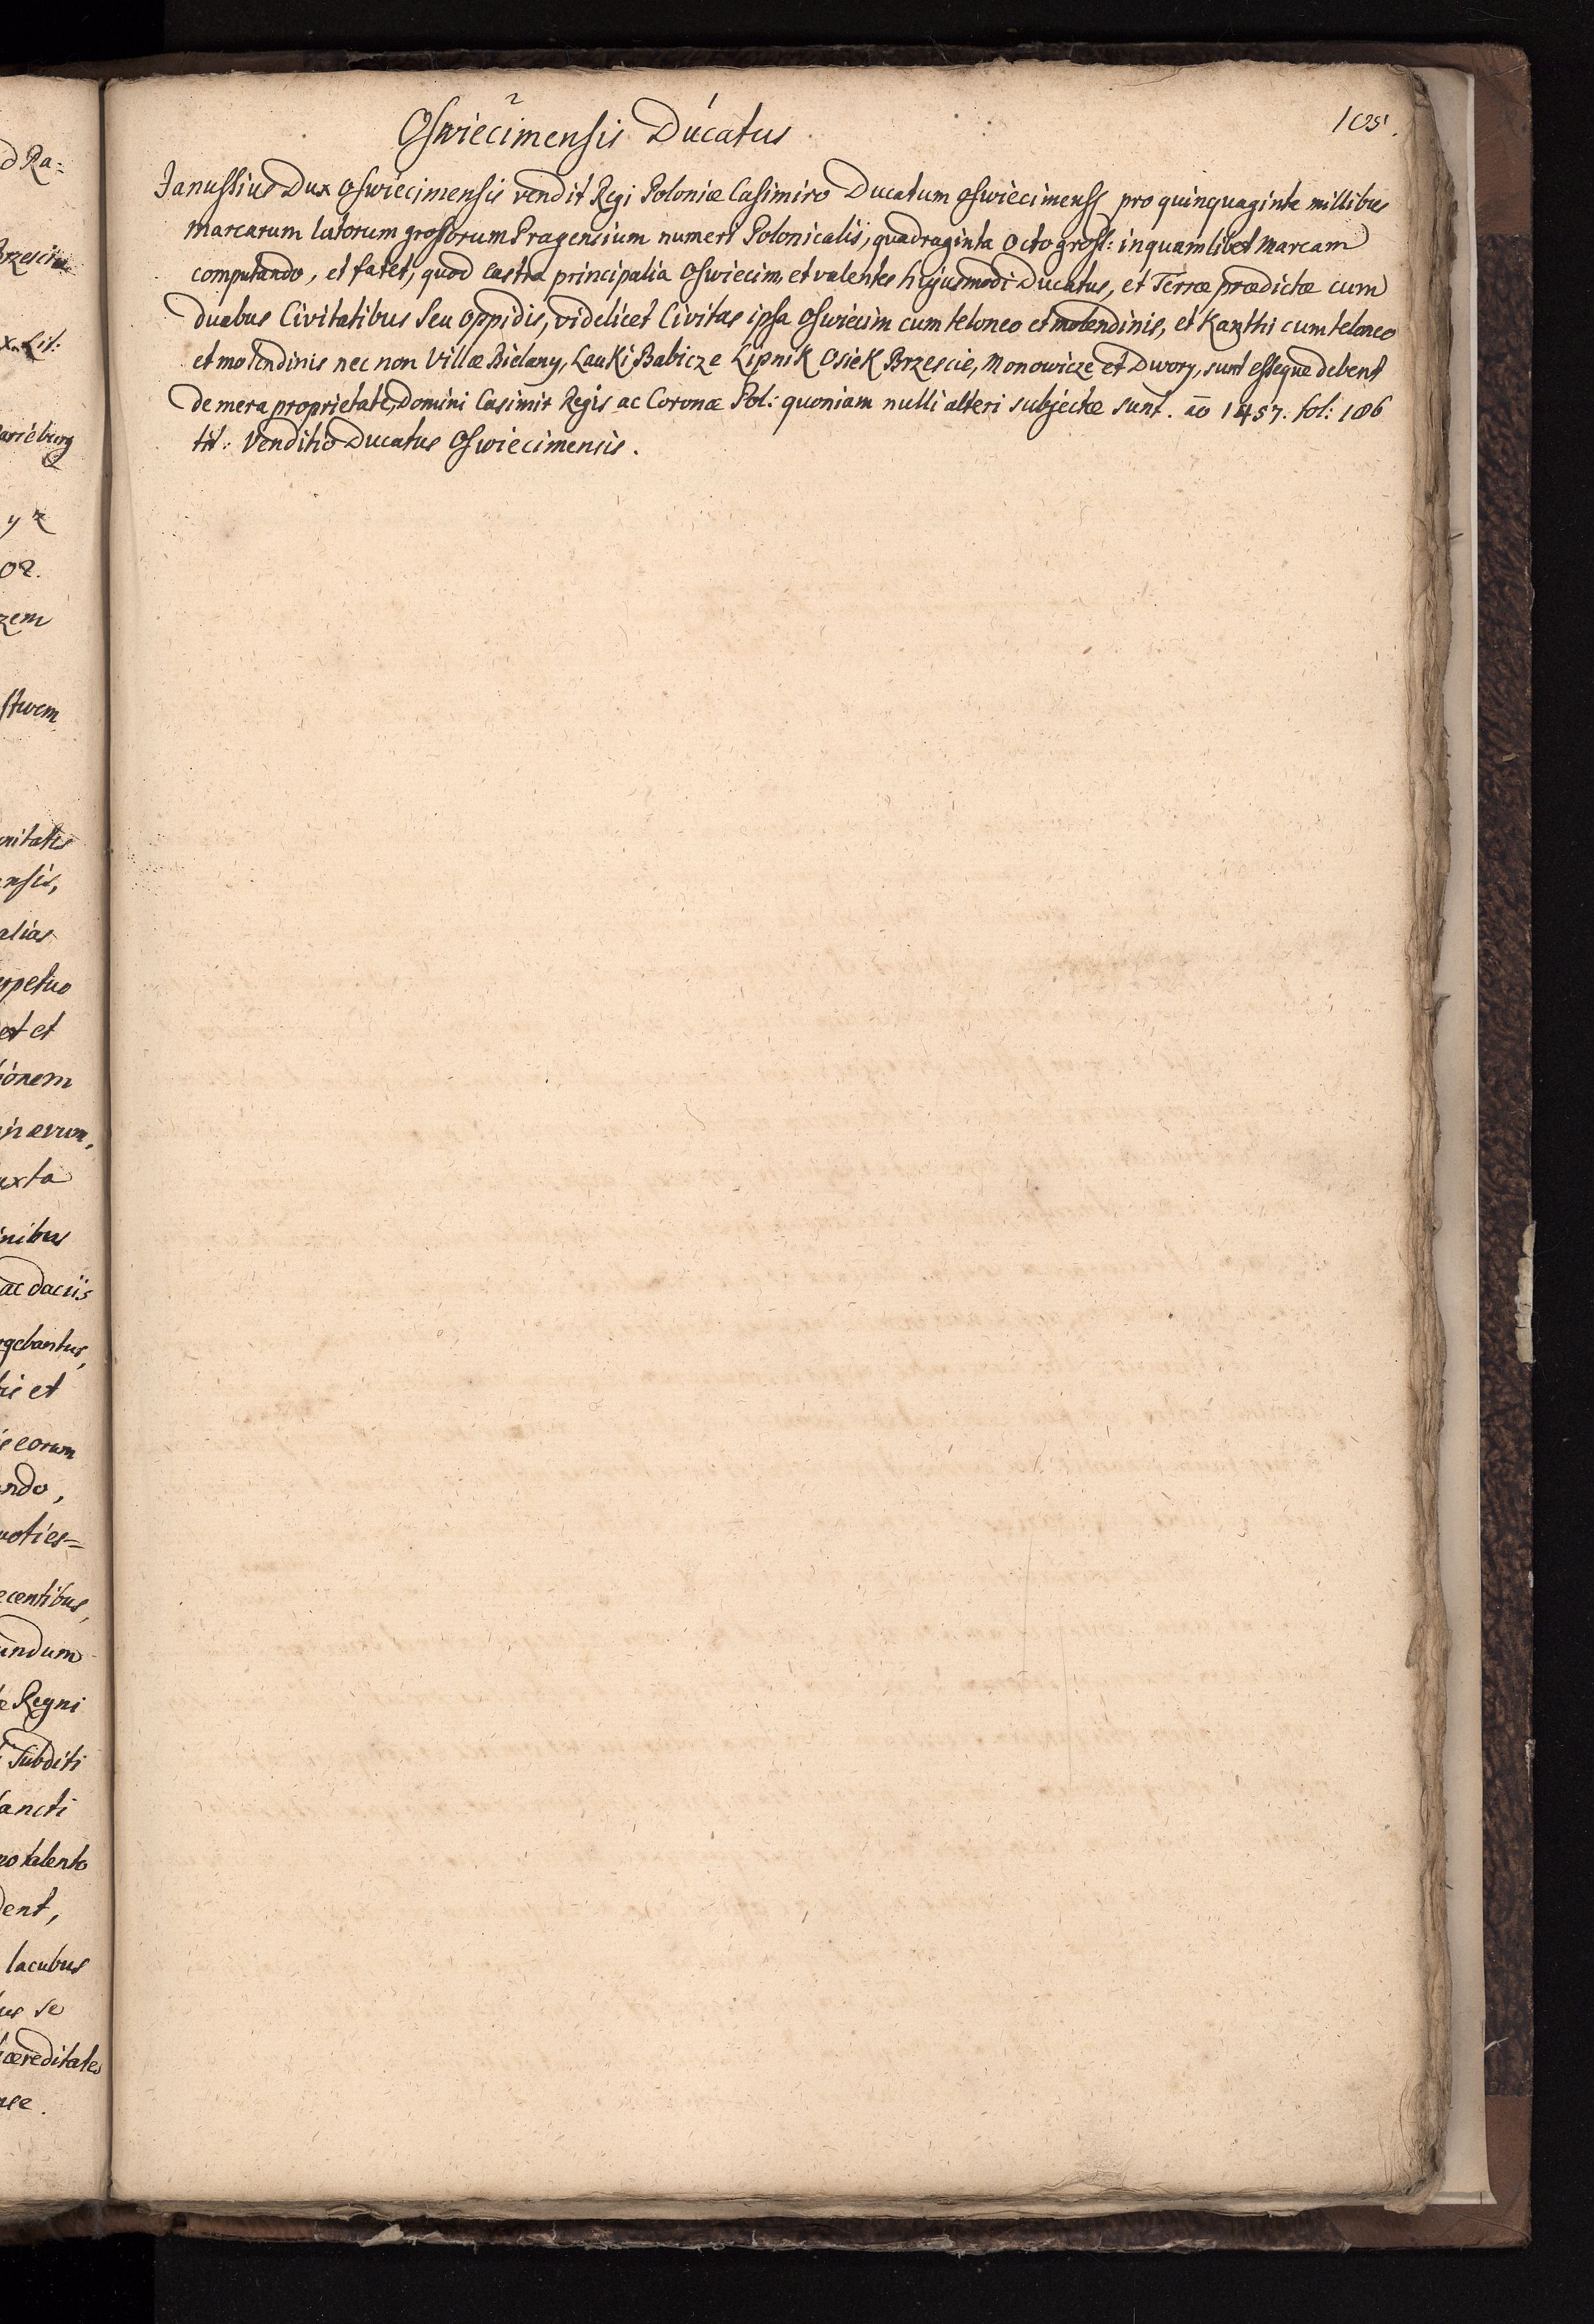 d Ra=
Brzesciu
x. Lit:
arieburg
y z
02.
zem
stwem
unitatis
ensis,
alias
erpetuo
et et
ionem
in ærum,
uxta
inibus
ac daciis
rgebantur,
is et
is eorum
ndo,
uoties=
ecentibus,
undum
e Regni
Subditi
Sancti
no talento
dent,
lacubus
us se
hæreditates
Oswiecimensis Ducatus
105.
Janussius Dux Oswiecimensis vendit Regi Poloniæ Casimiro Ducatum Oswiecimens: pro quinquaginta millibus
marcarum latorum grossorum Pragensium numeri Polonicalis, quadraginta Octo gross: in quamlibet Marcam
computando, et fatet, quod castra principalia Oswiecim, et valentes hujusmodi Ducatus, et Terræ prædictæ cum
duabus Civitatibus seu oppidis, videlicet Civitas ipsa Oswiecim cum teloneo et molendinis, et Kanthi cum teloneo
et molendinis nec non Villæ Bielany, Lauki Babicze Lipnik Osiek Brzescie, Monowicze et Dwory, sunt esseque debent
de mera proprietate, Domini Casimir Regis ac Coronæ Pol: quoniam nulli alteri subjectæ sunt. aõ 1457. fol: 106
tit: Venditio Ducatus Oswiecimensis.